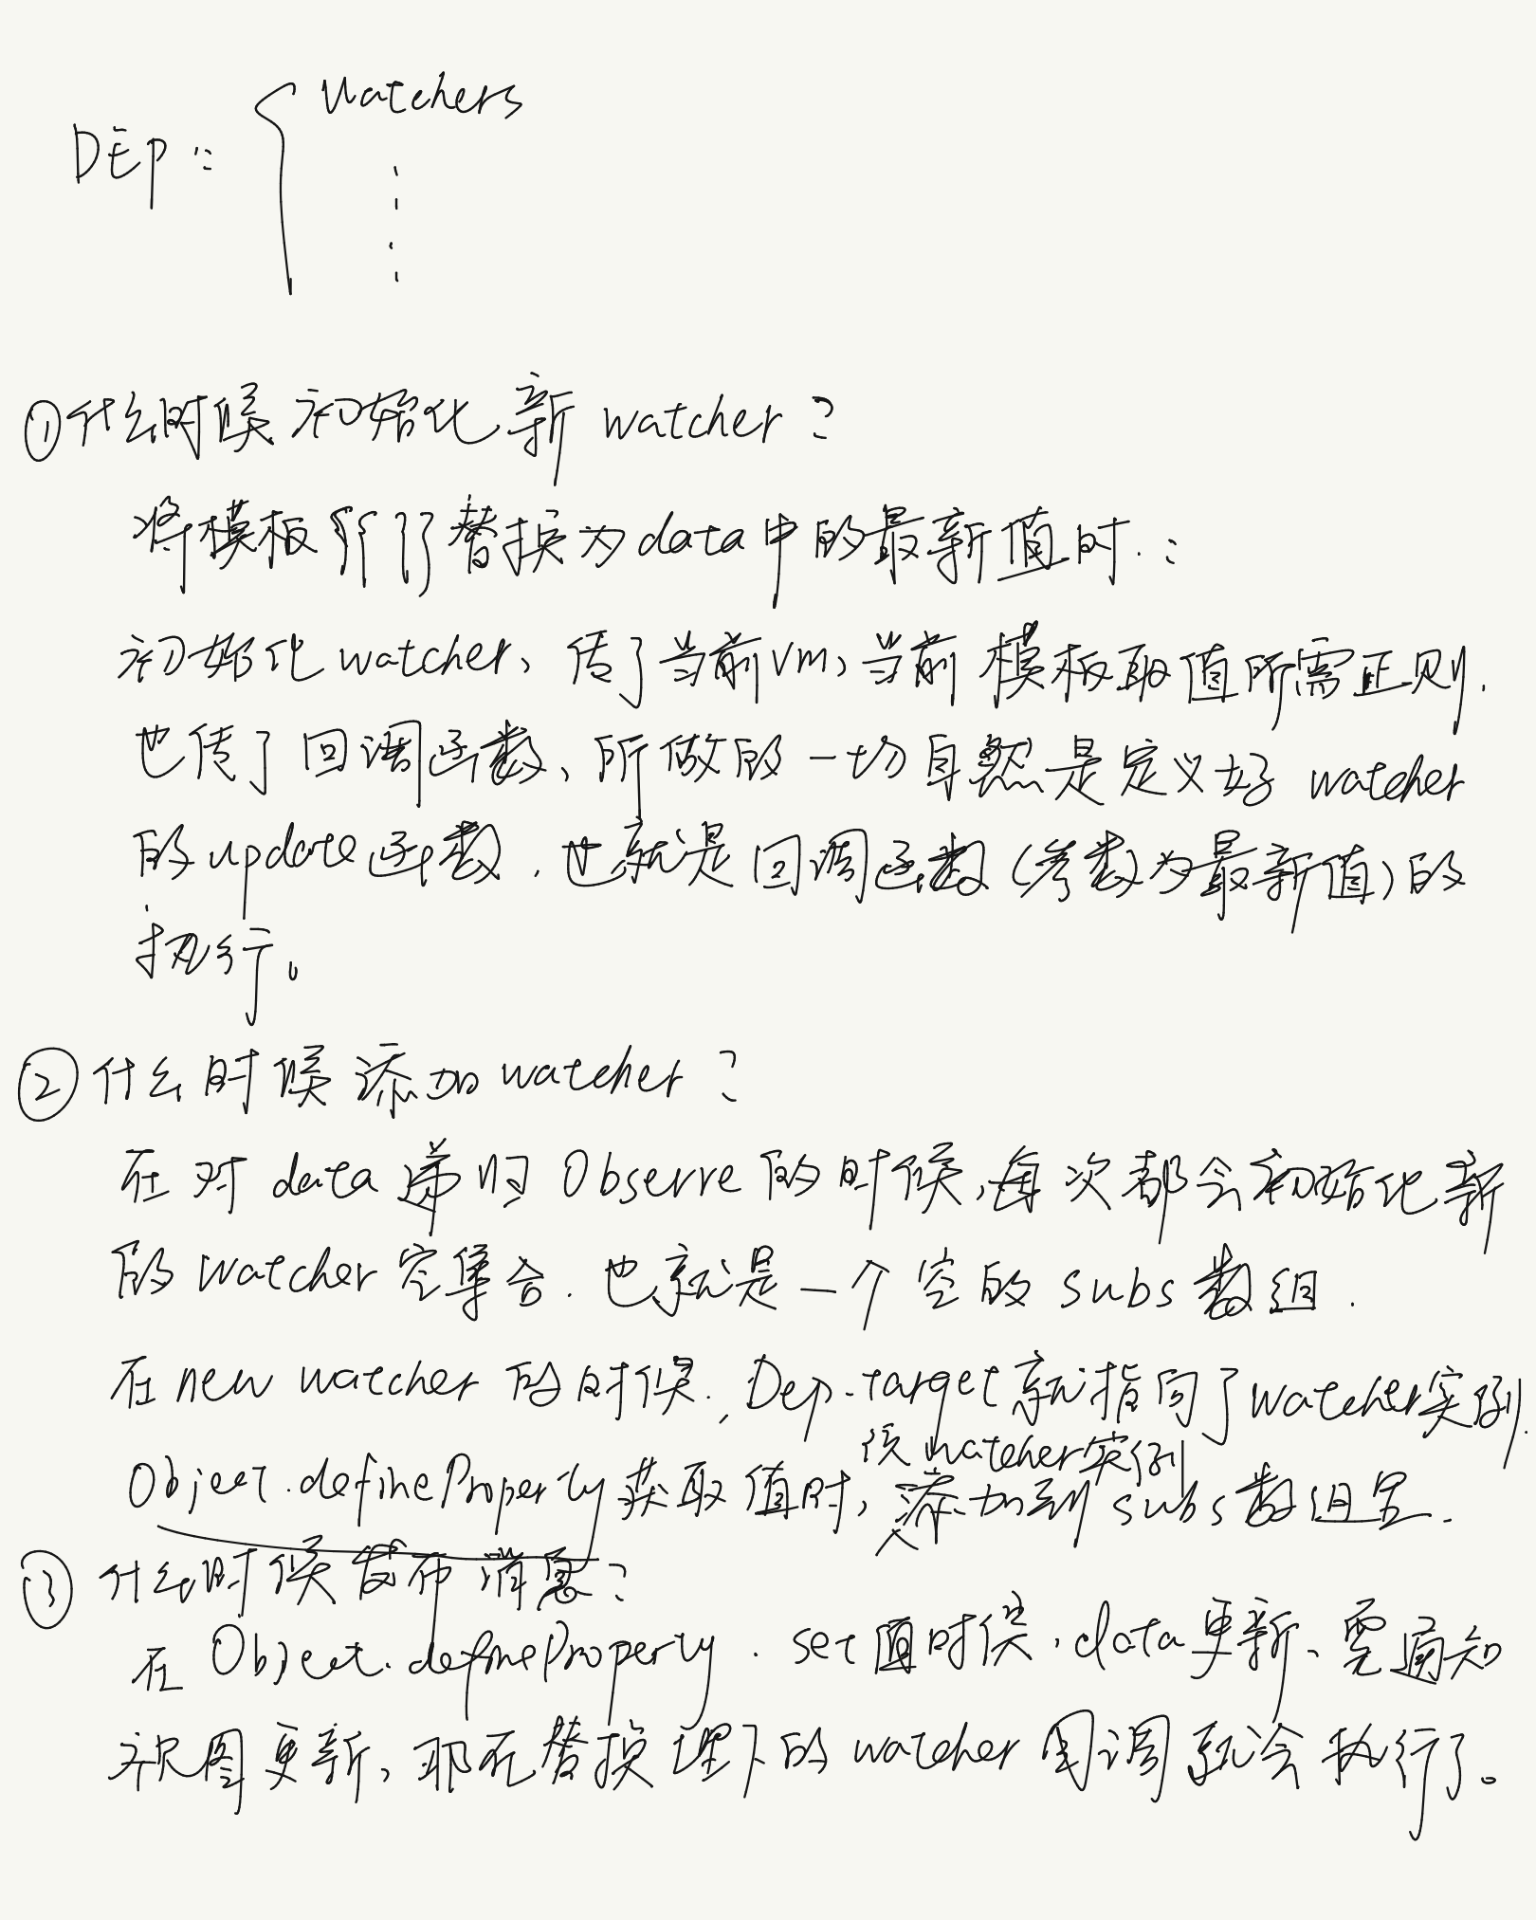 Watchers
DEp :
①什么时候初始化新 watcher ?
将模板{{}}替换为data中的最新值时.:
初始化watcher、传了当前vm、当前模板取值所需正则.
也传了回调函数、所做的一切自然是定义好 watcher
的update函数.也就是回调函数(参数为最新值)的
执行。
②什么时候添加watcher ?
在对data递归Observe的时候,每次都会初始化新
的Watcher空集合.也就是一个空的subs数组.
在new watcher的时候., Dep.target就指向了watcher实例.
该watcher实例
Object.defineProperty获取值时,添加到subs数组里.
③什么时候发布消息?
在Object.defineProperty.set值时候.data更新、要通知
视图更新、那在替换埋下的watcher回调就会执行了。